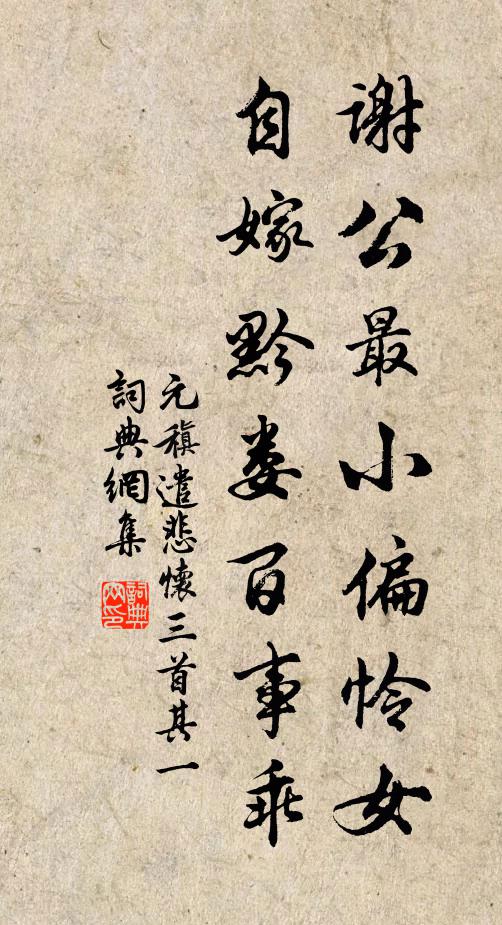 谢公最小偏怜女
自嫁黔娄百事乖
元稹遣悲懷三首其一
詞典網集
詞典网印